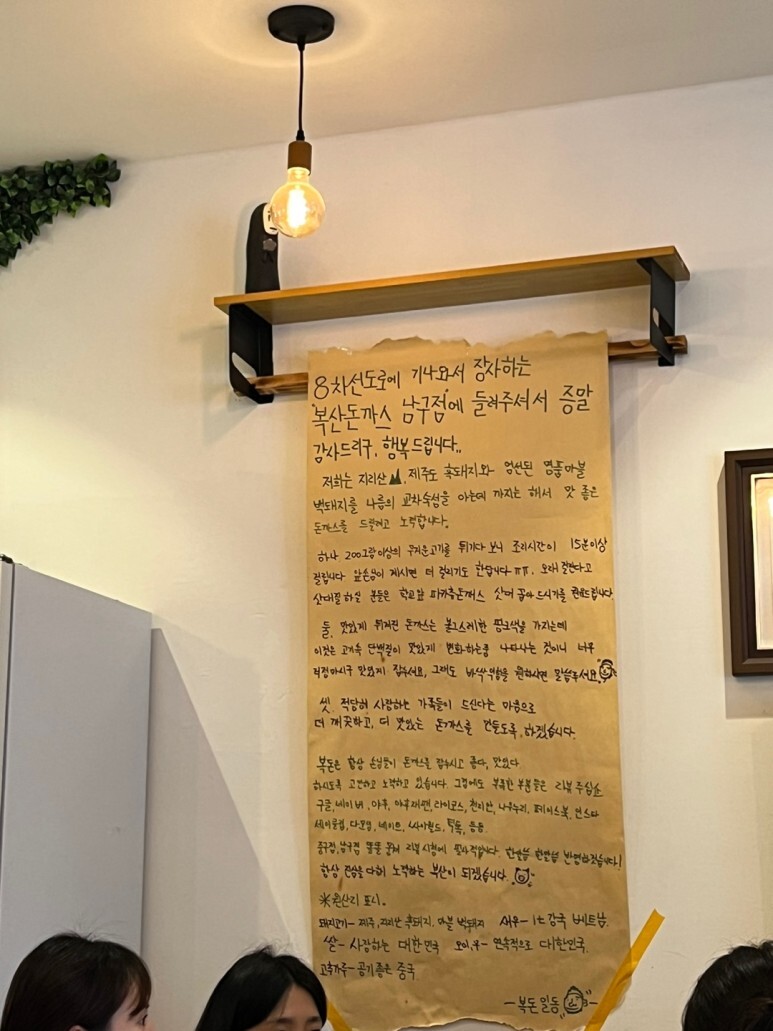 8차선도로에 기나와서 장사하는
복산돈까스 남구점에 들려주셔서 증말
감사드리구, 행복드립니다..
저희는 지리산, 제주도 흑돼지와 엄선된 명품마블
백돼지를 나름의 교차숙성을 아는데 까지는 해서 맛 좋은
돈까스를 드릴려고 노력합니다.
하나 200그람이상의 두꺼운고기를 튀기다 보니 조리시간이 15분이상
걸립니다 앞손님이 계시면 더 걸리기도 한답니다 ㅠㅠ, 오래 걸린다고
삿대질 하실 분들은 학교앞 피카츄돈까스 삿대 꼽아 드시기를 권해드립니다.
둘, 맛있게 튀겨진 돈까스는 불그스레한 핑크색을 가지는데
이것은 고기속 단백질이 맛있게 변화하는중 나타나는 것이니 너무
걱정마시구 맛있게 잡숴서요, 그래도 바싹익힘을 원하시면 말씀주서요
셋, 적당히 사랑하는 가족들이 드신다는 마음으로
더 깨끗하고, 더 맛있는 돈까스를 만들도록 하겠습니다.
복돈은 항상 손님들이 돈까스를 잡수시고 좋다, 맛있다
하시도록 고민하고 노력하고 있습니다. 그럼에도 부족한 부분들은 리뷰 주십쇼
구글, 네이버, 야후, 야후재팬, 라이코스, 천리안, 나우누리, 페이스북, 인스타
세이클럽, 다모임, 네이트, 싸이월드, 틱톡, 등등
중구점, 남구점 똘똘 뭉쳐 리뷰 시청에 필사적입니다. 한말씀 한말씀 반영하겠습니다!
항상 진심을 다해 노력하는 복산이 되겠습니다.
※원산리 표시.
돼지고기- 제주, 지리산 흑돼지, 마블 백돼지 새우- 1t 강국 베트남.
쌀- 사랑하는 대한민국 오이,무- 연속적으로 대한민국.
고춧가루- 공기좋은 중국
- 복돈 일동 -